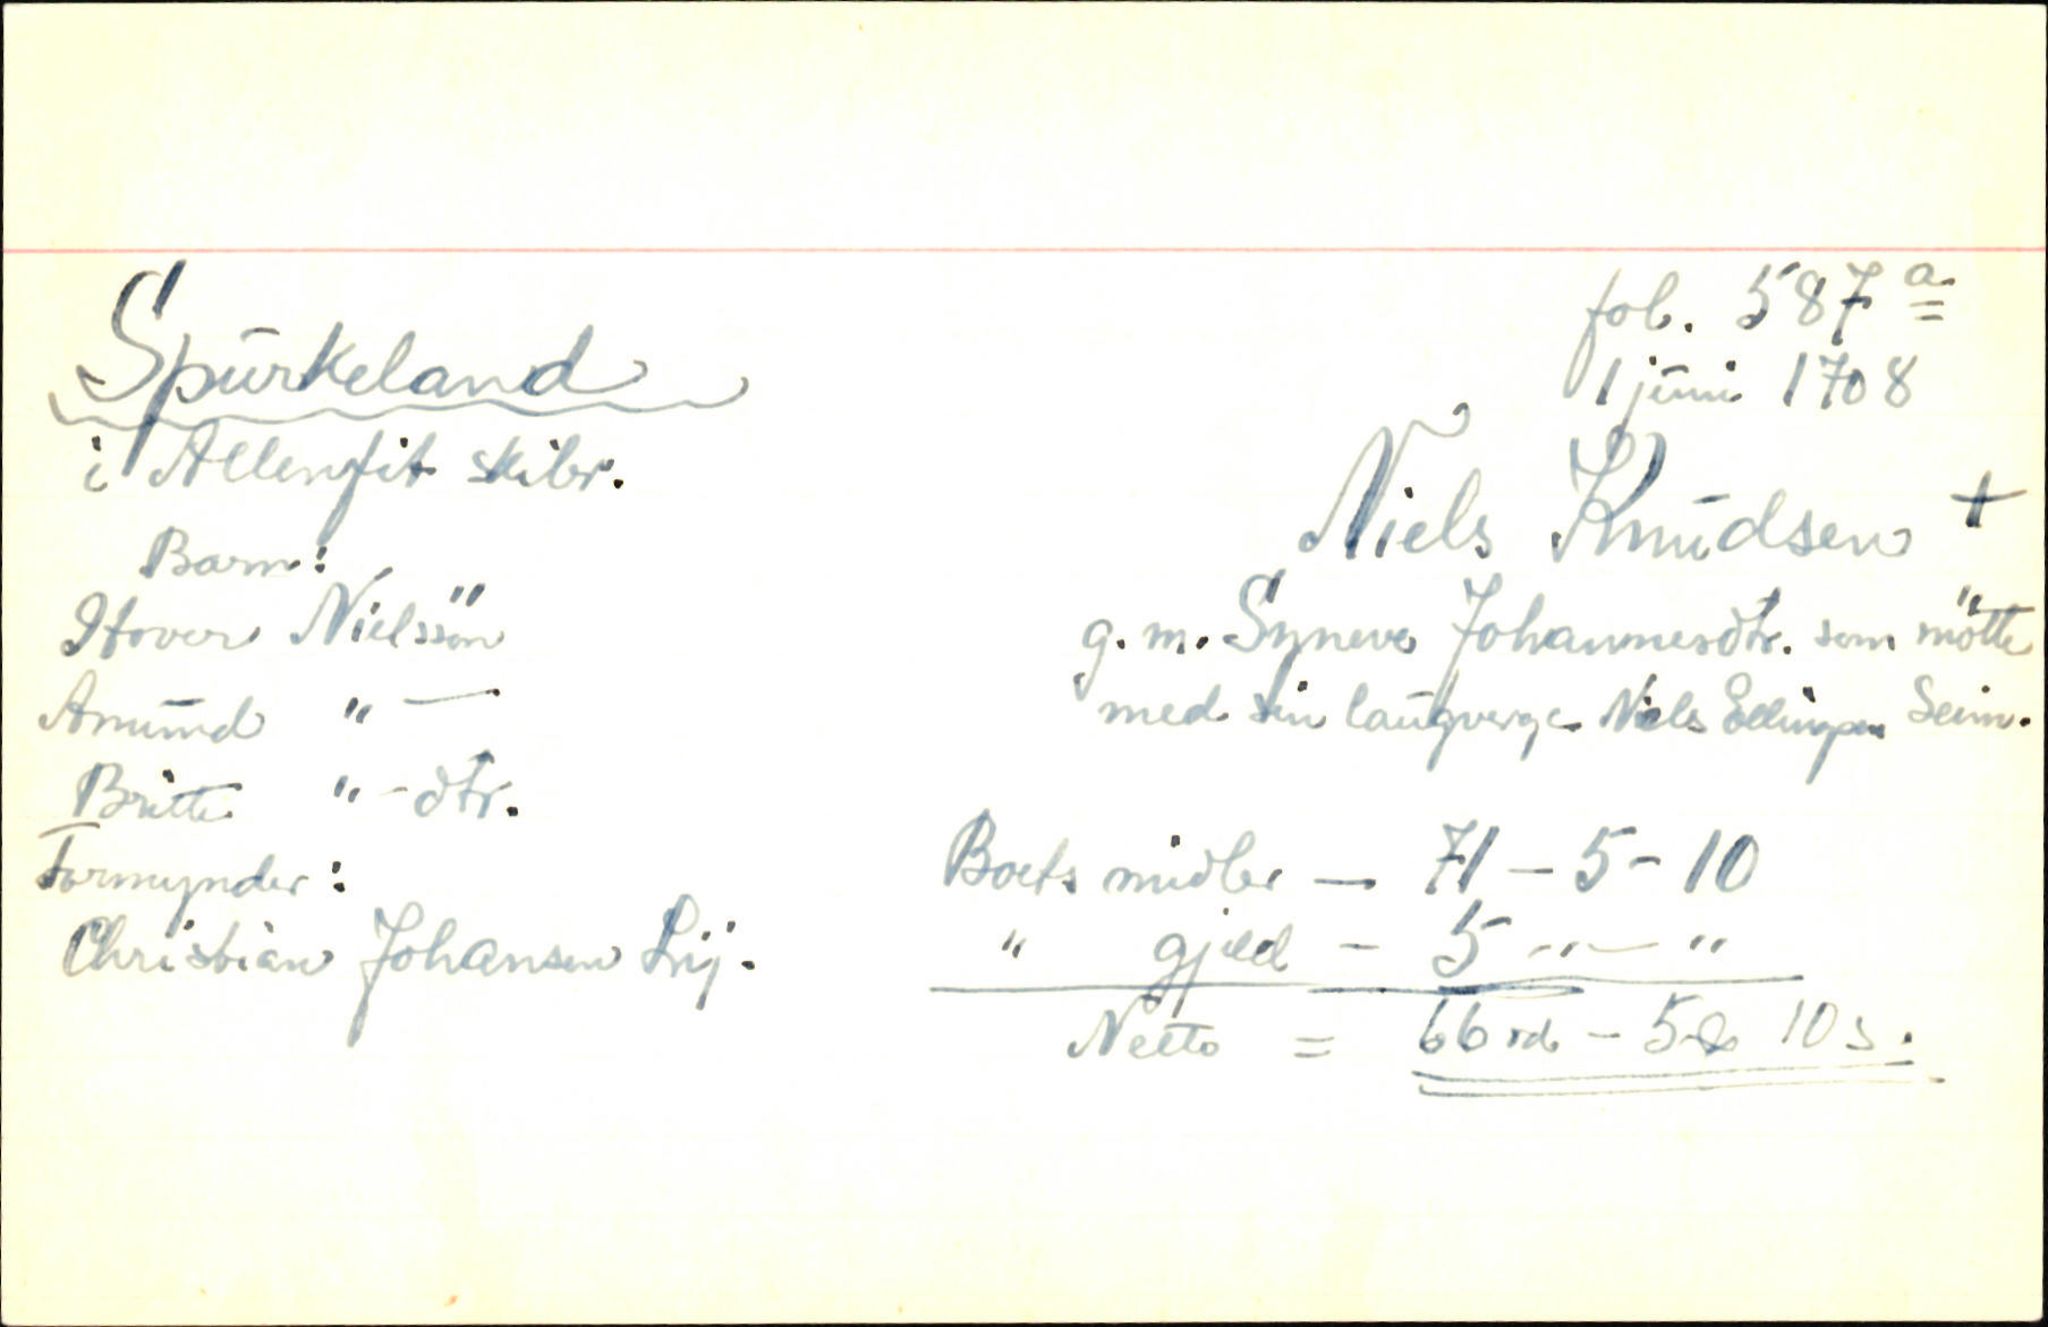 fol. 587 a
1 juni 1708
Spurkeland
i Allenfit skibr.
Niels Knudsen +
Barn:
Hover Nielssön
g. m. Syneve Johannesdtr. som mötte
Amund " —
med sin laugverge Niels Ellingsen Seim.
Britte " - dtr.
Formynder:
Boets midler — 71 - 5 - 10
Christian Johansen Lij.
" gjeld - 5 - " - "
Netto = 66 rd - 5 & 10 s.